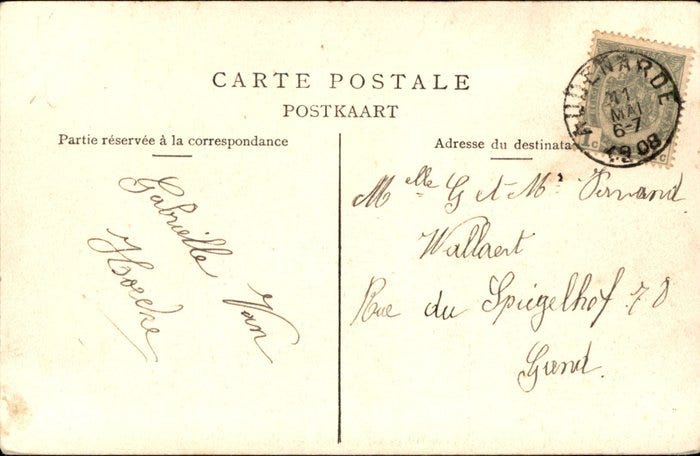 CARTE POSTALE
POSTKAART
Partie réservée à la correspondance
Adresse du destinata
AUDENARDE
11
MAI
6-7
1908
1 c
c
Gabrielle Van
Hoecke
Melle G et Mr Fernand
Wallaert
Rue du Spiegelhof 70
Gand.